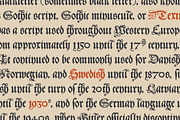 (sometimes black letter), also known as
Gothic script, Gothic minuscule, or Text
was a script used throughout Western Europe
om approximately 1150 until the 17th century.
It continued to be commonly used for Danish
Norwegian, and Swedish until the 1870s,
until the of the 20th century. Latvian
til the 1930s, and for the German language
til the 1940s, when Hitler officially discontin